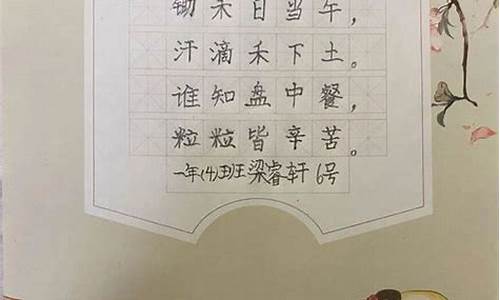 锄禾日当午，
汗滴禾下土。
谁知盘中餐，
粒粒皆辛苦。
一年(4)班梁睿轩 6号